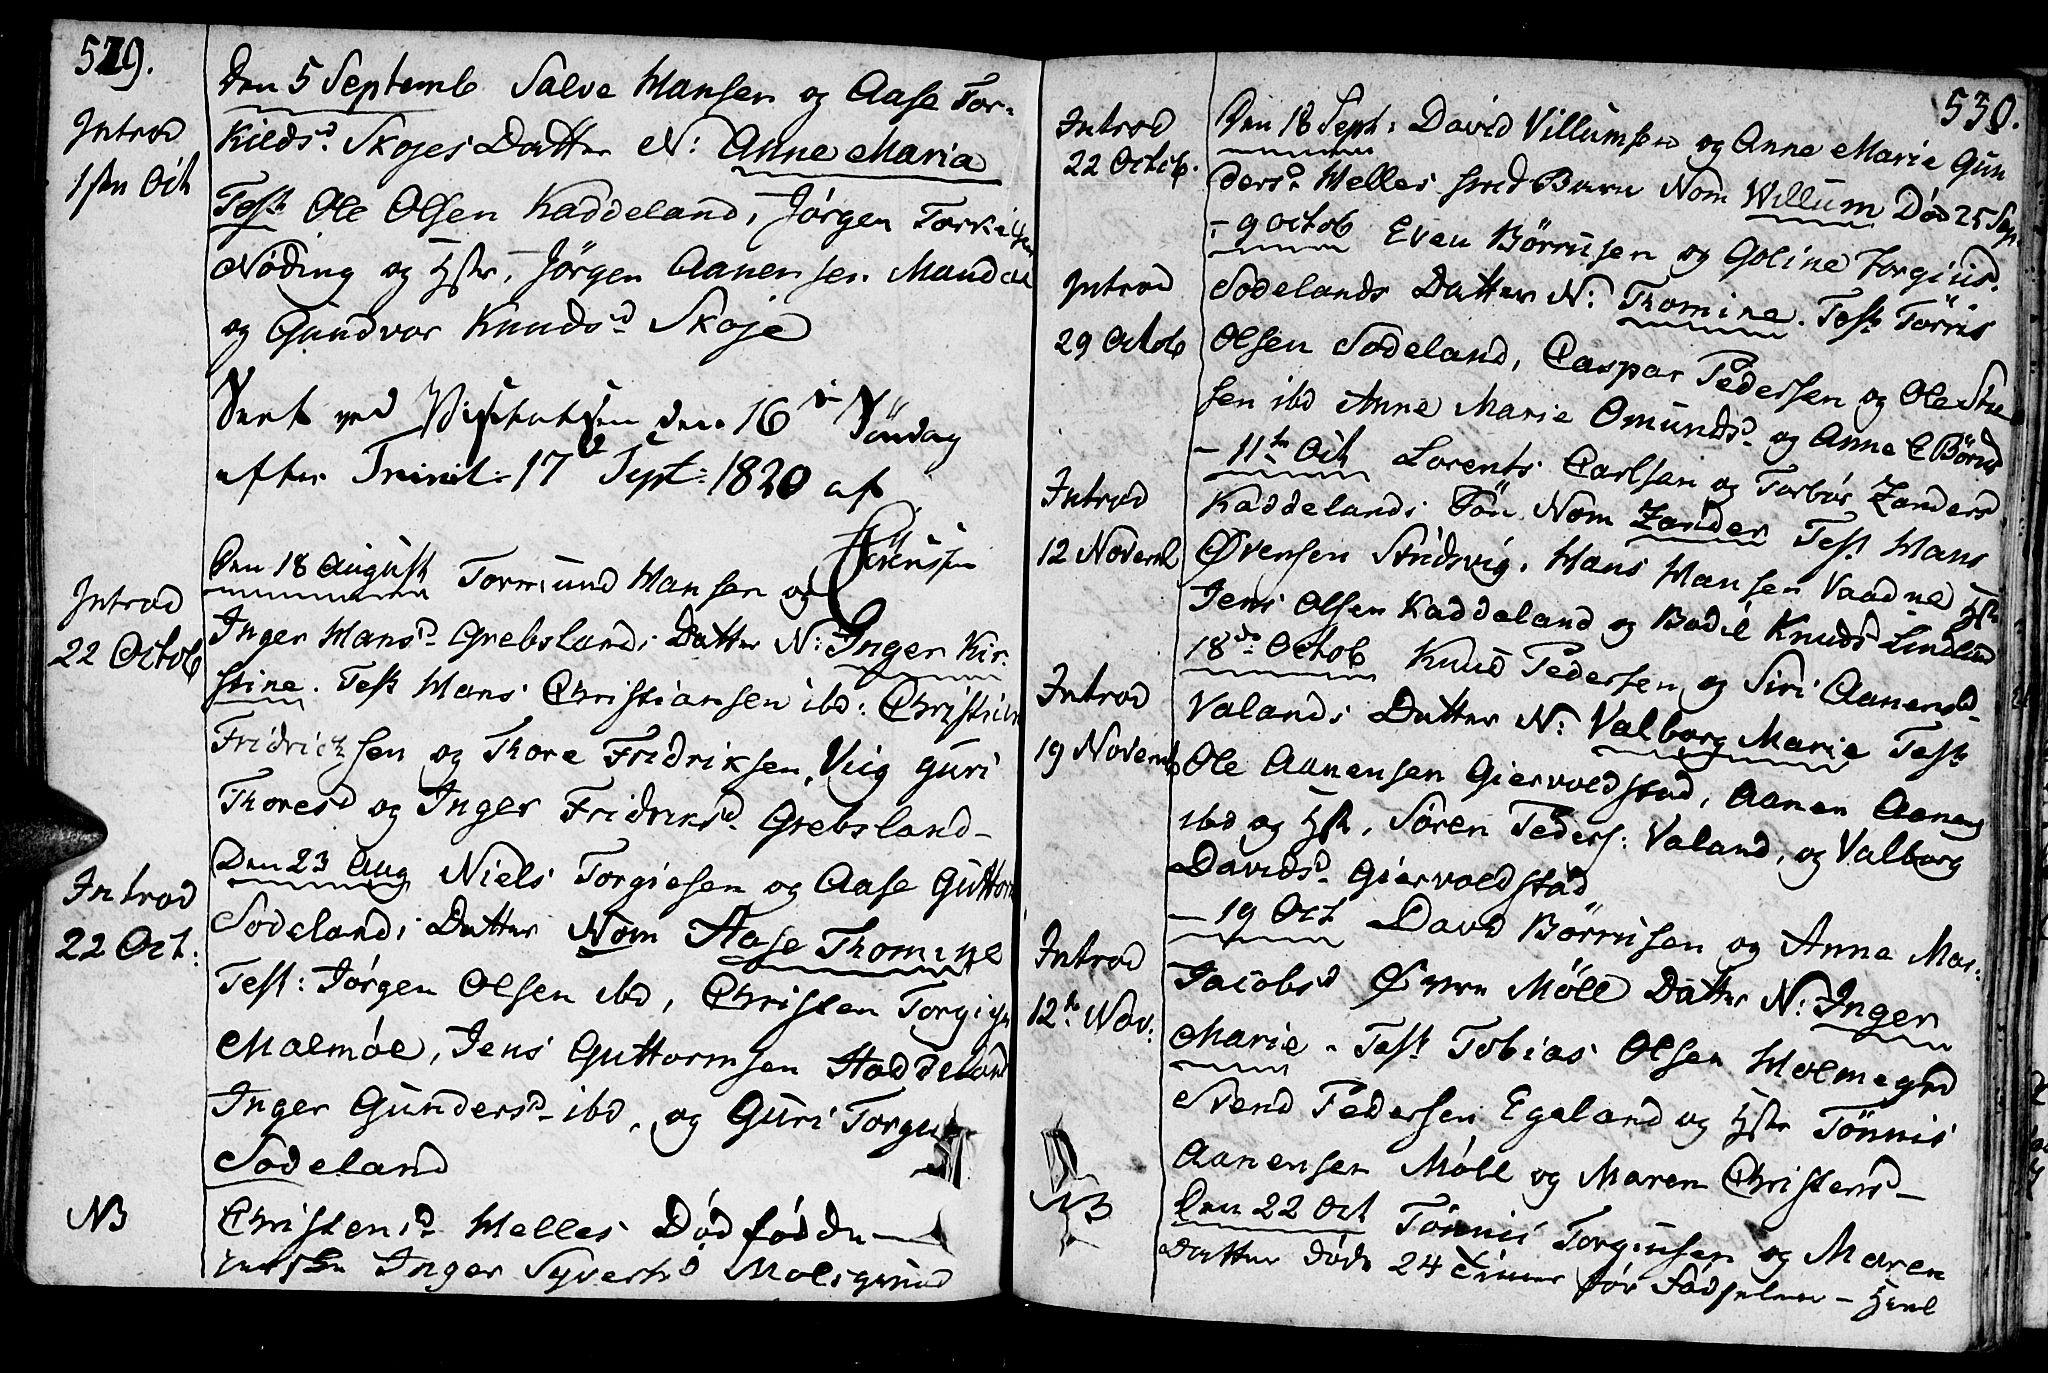 529.
Den 5 Septemb Salve Hansen og Aase Tor-
Introd
1sten Oct
kildsd. Skojes Datter N: Anne Maria
Test Ole Olsen Kaddeland, Jørgen Torkilsen
Nöding og Hstr, Jörgen Aanensen Mandal
og Gundvor Knudsd Skoje
Seet ved Visitatsen den 16de Söndag
efter Trinit: 17 Sept: 1820 af
Sörensen
Introd
22 Octob
Den 18 August Tormund Hansen og
Inger Hansd. Grebslands Datter N: Inger Kir-
stine. Test Hans Christiansen ibd: Christian
Fridrichsen og Thore Fridriksen, Viig Guri
Thoresd og Inger Fridriksd. Grebsland-
Introd
22 Oct:
Den 23 Aug Niels Torgiesen og Aase Guttorm
Sodelands Datter Nom Aase Thomine
Test: Jörgen Olsen ibd, Christen Torgies
Malmöe, Jens Guttormsen Haddeland
Inger Gundersd- ibd, og Guri Torgie
Sodeland
NB
Christensd Helles Død fødde
Inger Syvertsd Molsgrund
530.
Introd
22 Octob.
Den 18 Sept: David Villumsen og Anne Marie Gun
dersd. Helles Barn Nom Willum Död 25 Sep.
Introd
29 Octob
- 9 octob Even Börrusen og Goline Torgiusd.
Sodelands Datter N: Thomine. Test Törris
Olsen Sodeland, Caspar Pedersen og Ole
sen ibd Anne Marie Omundsd. og Anne E Börres
Introd
12 Novemb
- 11te Oct Lorents Carlsen og Torbör Zanders
Kaddelands Sön Nom Zander Test Hans
Øvensen Stridsvig, Hans Hansen Vaadne Hstr
Jens Olsen Kaddeland og Bodil Knuds Lindland
Introd
19 Novemb
18de Octob Knud Pedersen og Siri Aanensd-
Valands Datter N: Valborg Marie Test
Ole Aanensen Giervoldstad, Aanen Aanens
ibd og Hstr, Sören Peders: Valand, og Valborg
Davidsd- Giervoldstad
Introd
12te Nov:
- 19 Oct David Börrusen og Anne Mar:
Jacobsd Øvre Möll Datter N: Inger
Marie. Test Tobias Olsen Holmegrd
Svend Pedersen Egeland og Hstr Tönnis
Aanensen Möll og Maren Christensd-
NB
Den 22 Oct Tönnis Torgiusen og Maren
Datter döde 24 Timer för Födselen -